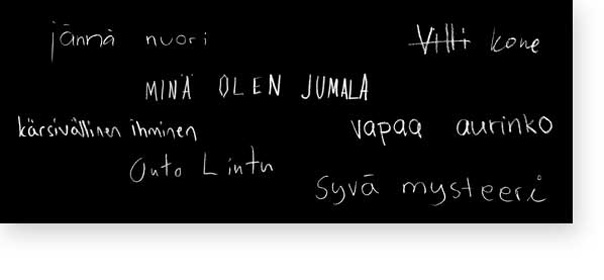 jännä nuori
Villi kone
MINÄ OLEN JUMALA
kärsivällinen ihminen
vapaa aurinko
Outo Lintu
syvä mysteeri